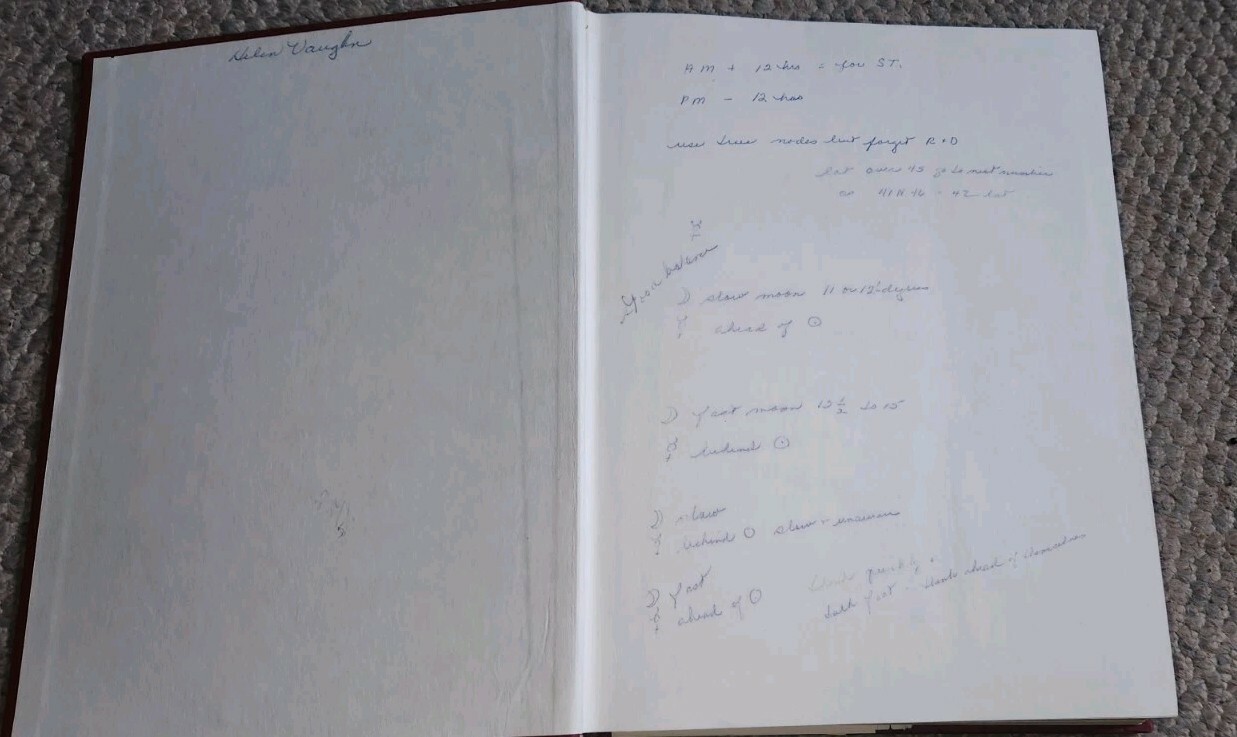 Helen Vaughn
AM + 12 hrs = for ST.
PM - 12 hrs
use true nodes but forget R + D
lat over 45 go to next number
as 41 N 46 = 42 lat
☿
Good balance
☽ slow moon 11 or 12 degrees
☿ ahead of ☉
☽ fast moon 13 1/2 to 15
☿ behind ☉
☽ slow
☿ behind ☉ slow + unsure
☽ fast
☿ ahead of ☉
thinks quickly
talk fast - thinks ahead of themselves